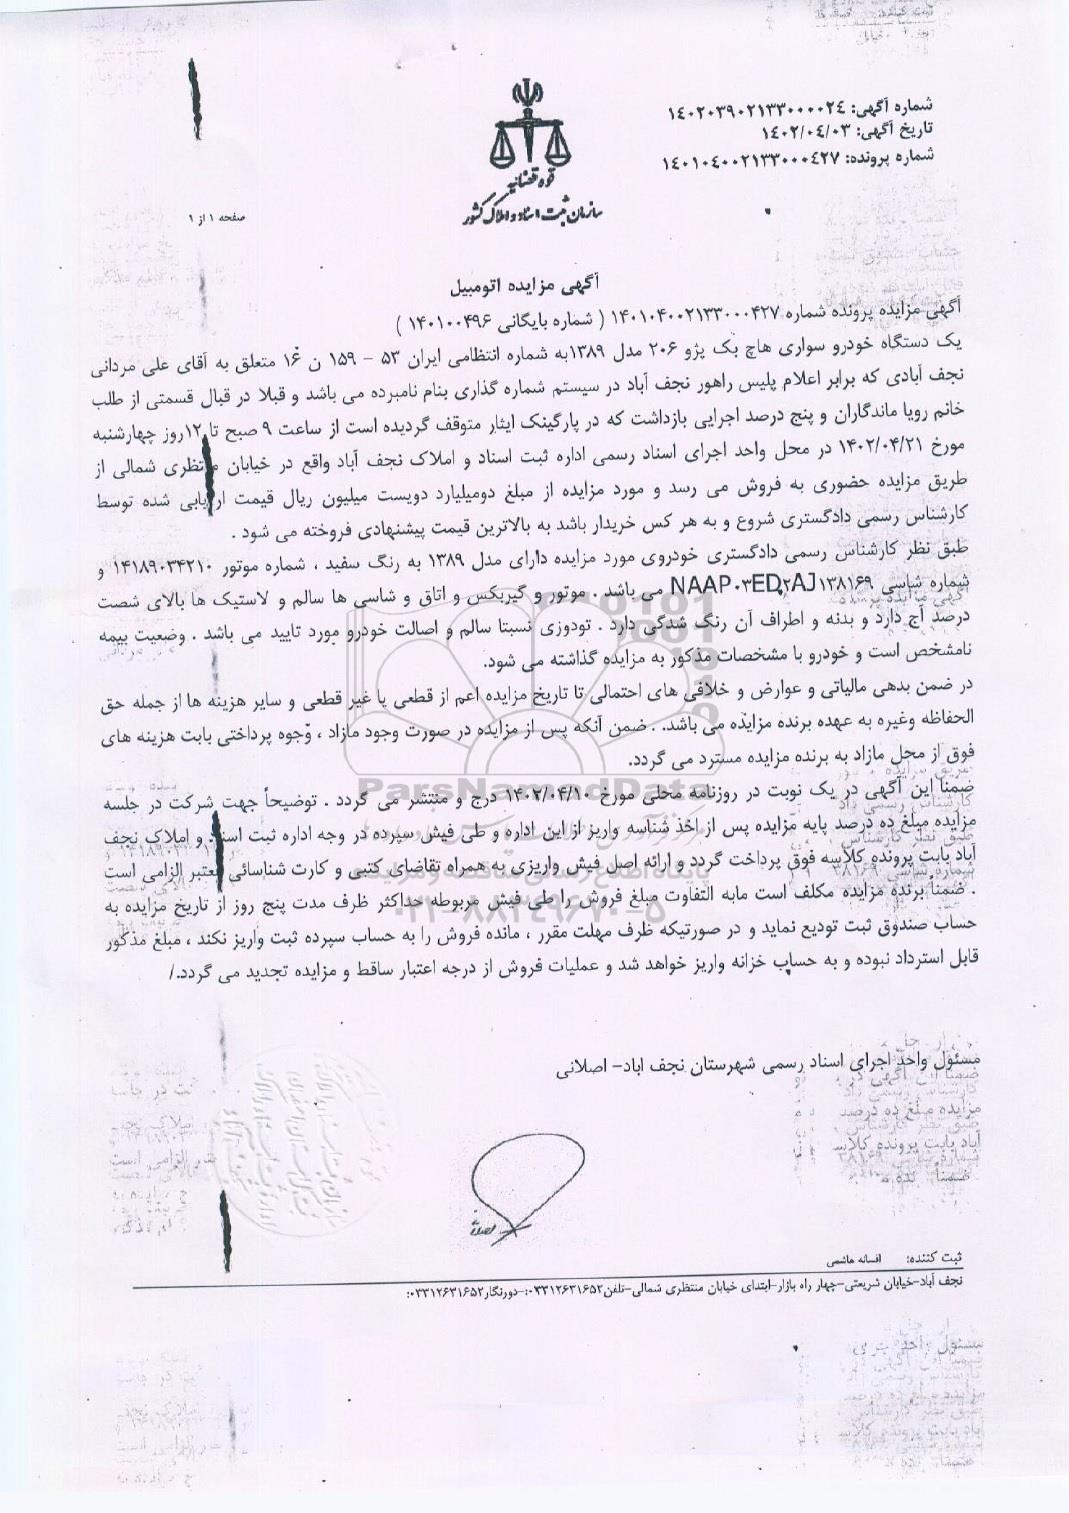 شماره آگهی: ۱٤۰۲۰۳۹۰۲۱۳۳۰۰۰۰۲٤
تاریخ آگهی: ۱٤۰۲/۰٤/۰۳
شماره پرونده: ۱٤۰۱۰٤۰۰۲۱۳۳۰۰۰٤۲۷
قوه قضائیه
سازمان ثبت اسناد و املاک کشور
صفحه ۱ از ۱
آگهی مزایده اتومبیل
آگهی مزایده پرونده شماره ۱۴۰۱۰۴۰۰۲۱۳۳۰۰۰۴۲۷ ( شماره بایگانی ۱۴۰۱۰۰۴۹۶ )
یک دستگاه خودرو سواری هاچ بک پژو ۲۰۶ مدل ۱۳۸۹به شماره انتظامی ایران ۵۳ – ۱۵۹ ن ۱۶ متعلق به آقای علی مردانی
نجف آبادی که برابر اعلام پلیس راهور نجف آباد در سیستم شماره گذاری بنام نامبرده می باشد و قبلا در قبال قسمتی از طلب
خانم رویا ماندگاران و پنج درصد اجرایی بازداشت که در پارگینک ایثار متوقف گردیده است از ساعت ۹ صبح تا ۱۲روز چهارشنبه
مورخ ۱۴۰۲/۰۴/۲۱ در محل واحد اجرای اسناد رسمی اداره ثبت اسناد و املاک نجف آباد واقع در خیابان منتظری شمالی از
طریق مزایده حضوری به فروش می رسد و مورد مزایده از مبلغ دومیلیارد دویست میلیون ریال قیمت ارزیابی شده توسط
کارشناس رسمی دادگستری شروع و به هر کس خریدار باشد به بالاترین قیمت پیشنهادی فروخته می شود .
طبق نظر کارشناس رسمی دادگستری خودروی مورد مزایده دارای مدل ۱۳۸۹ به رنگ سفید ، شماره موتور ۱۴۱۸۹۰۳۴۲۱۰ و
شماره شاسی NAAP۰۳ED۲AJ۱۳۸۱۶۹ می باشد . موتور و گیربکس و اتاق و شاسی ها سالم و لاستیک ها بالای شصت
درصد آج دارد و بدنه و اطراف آن رنگ شدگی دارد . تودوزی نسبتا سالم و اصالت خودرو مورد تایید می باشد . وضعیت بیمه
نامشخص است و خودرو با مشخصات مذکور به مزایده گذاشته می شود.
در ضمن بدهی مالیاتی و عوارض و خلافی های احتمالی تا تاریخ مزایده اعم از قطعی یا غیر قطعی و سایر هزینه ها از جمله حق
الحفاظه وغیره به عهده برنده مزایده می باشد. . ضمن آنکه پس از مزایده در صورت وجود مازاد ، وجوه پرداختی بابت هزینه های
فوق از محل مازاد به برنده مزایده مسترد می گردد.
ParsNamadData
ضمنا این آگهی در یک نوبت در روزنامه محلی مورخ ۱۴۰۲/۰۴/۱۰ درج و منتشر می گردد . توضیحاً جهت شرکت در جلسه
مزایده مبلغ ده درصد پایه مزایده پس از اخذ شناسه واریز از این اداره و طی فیش سپرده در وجه اداره ثبت اسناد و املاک نجف
آباد بابت پرونده کلاسه فوق پرداخت گردد و ارائه اصل فیش واریزی به همراه تقاضای کتبی و کارت شناسائی معتبر الزامی است
. ضمناً برنده مزایده مکلف است مابه التفاوت مبلغ فروش را طی فیش مربوطه حداکثر ظرف مدت پنج روز از تاریخ مزایده به
۰۲۱-۸۸۳۴۹۶۷۰-۵
حساب صندوق ثبت تودیع نماید و در صورتیکه ظرف مهلت مقرر ، مانده فروش را به حساب سپرده ثبت واریز نکند ، مبلغ مذکور
قابل استرداد نبوده و به حساب خزانه واریز خواهد شد و عملیات فروش از درجه اعتبار ساقط و مزایده تجدید می گردد./
مسئول واحد اجرای اسناد رسمی شهرستان نجف اباد- اصلانی
ثبت کننده: افسانه هاشمی
نجف آباد-خیابان شریعتی-چهار راه بازار-ابتدای خیابان منتظری شمالی-تلفن۰۳۳۱۲۶۳۱۶۵۲:-دورنگار۰۳۳۱۲۶۳۱۶۵۲: